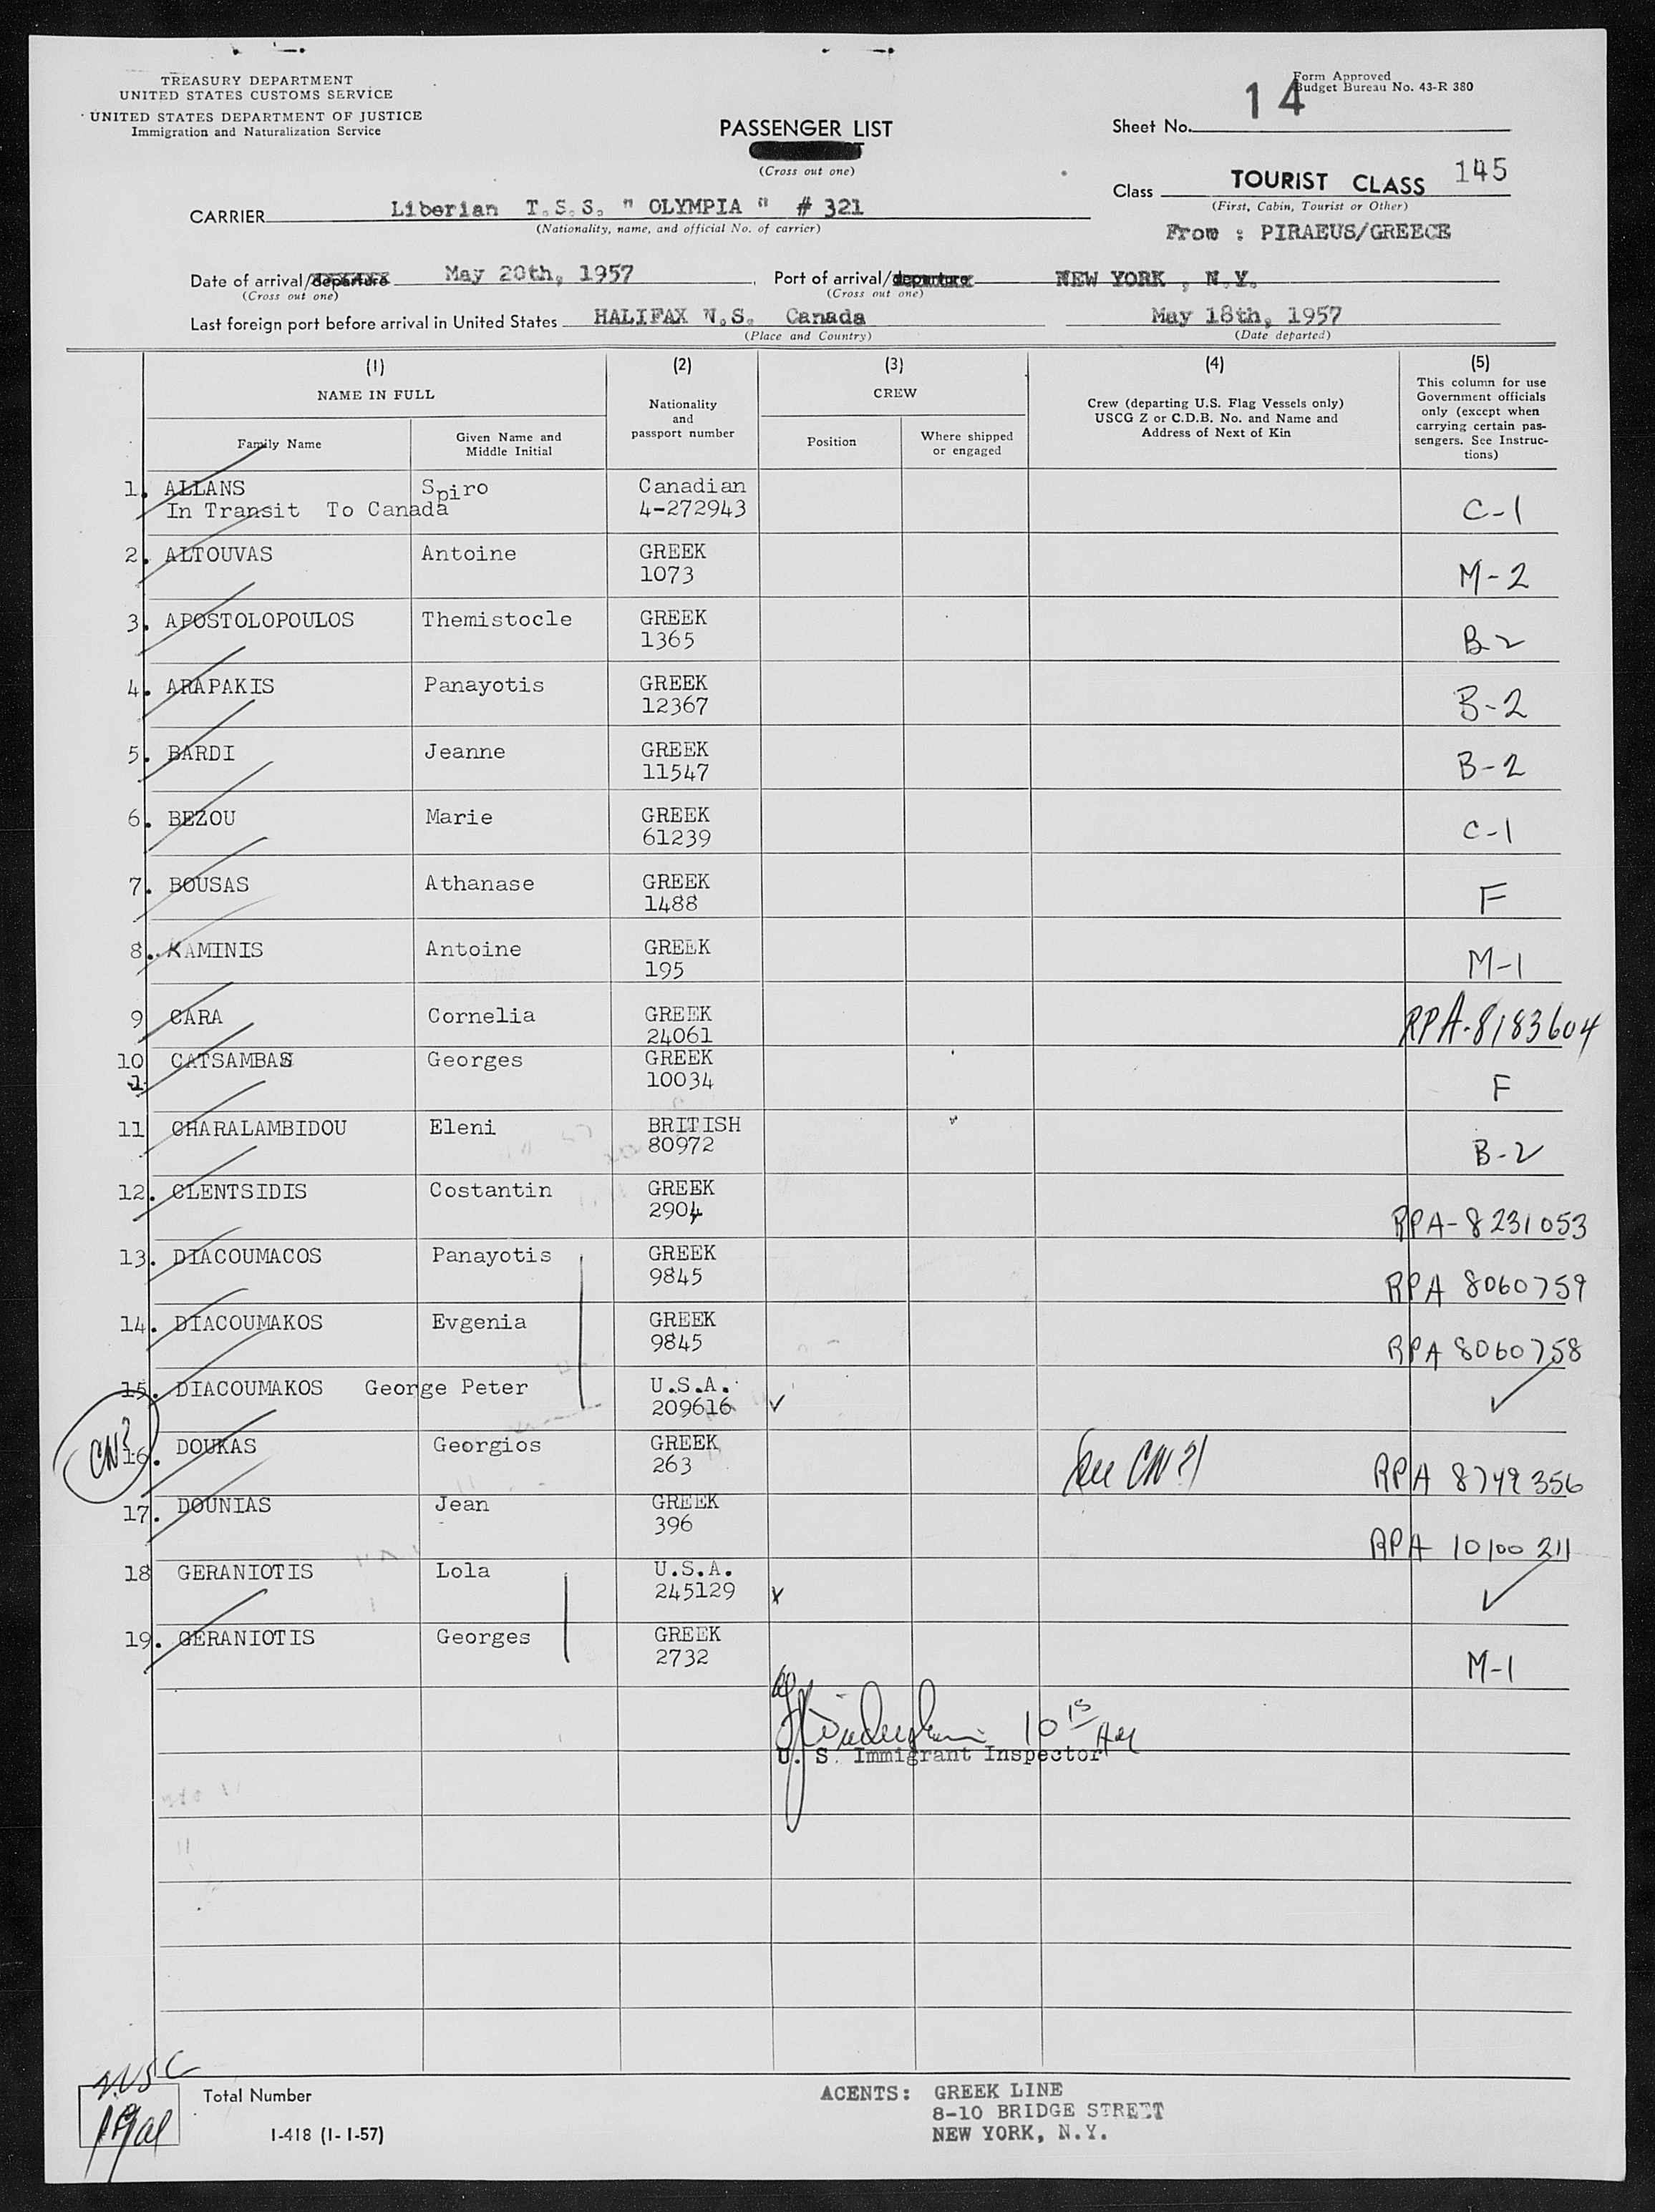 TREASURY DEPARTMENT
UNITED STATES CUSTOMS SERVICE
UNITED STATES DEPARTMENT OF JUSTICE
Immigration and Naturalization Service
PASSENGER LIST
(Cross out one)
Form Approved
Budget Bureau No. 43-R 380
Sheet No. 14
Class TOURIST CLASS 145
(First, Cabin, Tourist or Other)
CARRIER Liberian T.S.S. " OLYMPIA " # 321
(Nationality, name, and official No. of carrier)
From : PIRAEUS/GREECE
Date of arrival/departure May 20th, 1957 Port of arrival/departure NEW YORK , N.Y.
(Cross out one) (Cross out one)
Last foreign port before arrival in United States HALIFAX N.S. Canada May 18th, 1957
(Place and Country) (Date departed)
(1) (2) (3) (4) (5)
NAME IN FULL
Family Name
Given Name and
Middle Initial
Nationality
and
passport number
CREW
Position
Where shipped
or engaged
Crew (departing U.S. Flag Vessels only)
USCG Z or C.D.B. No. and Name and
Address of Next of Kin
This column for use
Government officials
only (except when
carrying certain pas-
sengers. See Instruc-
tions)
1. ALLANS Spiro Canadian
In Transit To Canada 4-272943 C-1
2. ALTOUVAS Antoine GREEK
1073 M-2
3. APOSTOLOPOULOS Themistocle GREEK
1365 B-2
4. ARAPAKIS Panayotis GREEK
12367 B-2
5. BARDI Jeanne GREEK
11547 B-2
6. BEZOU Marie GREEK
61239 C-1
7. BOUSAS Athanase GREEK
1488 F
8. KAMINIS Antoine GREEK
195 M-1
9 CARA Cornelia GREEK
24061 RPA-8183604
10 CATSAMBAS Georges GREEK
10034 F
11 CHARALAMBIDOU Eleni BRITISH
80972 B-2
12. CLENTSIDIS Costantin GREEK
2904 RPA-8231053
13. DIACOUMACOS Panayotis GREEK
9845 RPA 8060759
14. DIACOUMAKOS Evgenia GREEK
9845 RPA 8060758
15. DIACOUMAKOS George Peter U.S.A.
209616
CN?
16. DOUKAS Georgios GREEK
263 See CN?) RPA 8749356
17. DOUNIAS Jean GREEK
396 RPA 10100211
18 GERANIOTIS Lola U.S.A.
245129
19. GERANIOTIS Georges GREEK
2732 M-1
10 15 AM
U. S. Immigrant Inspector
Total Number
I-418 (1-1-57)
ACENTS: GREEK LINE
8-10 BRIDGE STREET
NEW YORK, N.Y.